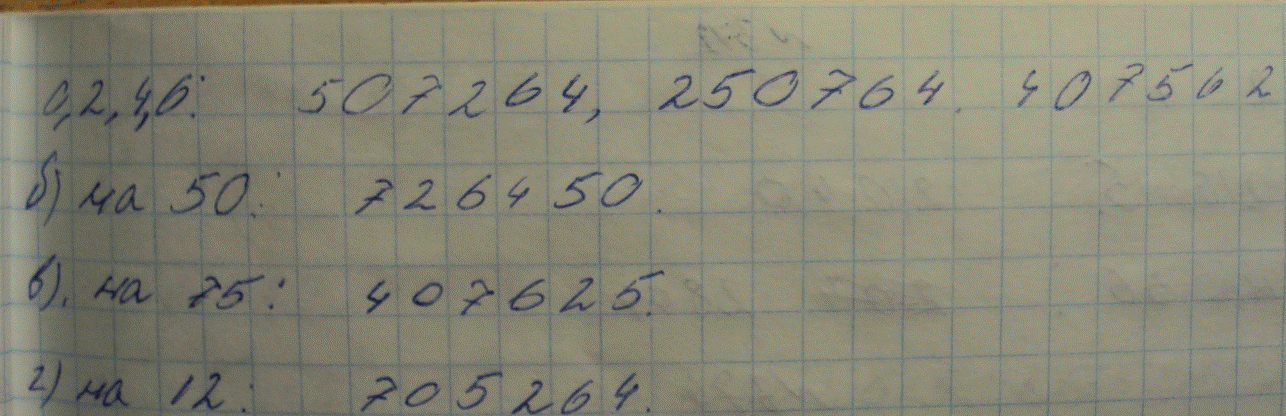 0,2,4,6: 507264, 250764. 407562
б) на 50: 726450.
в). на 75: 407625.
г) на 12: 705264.